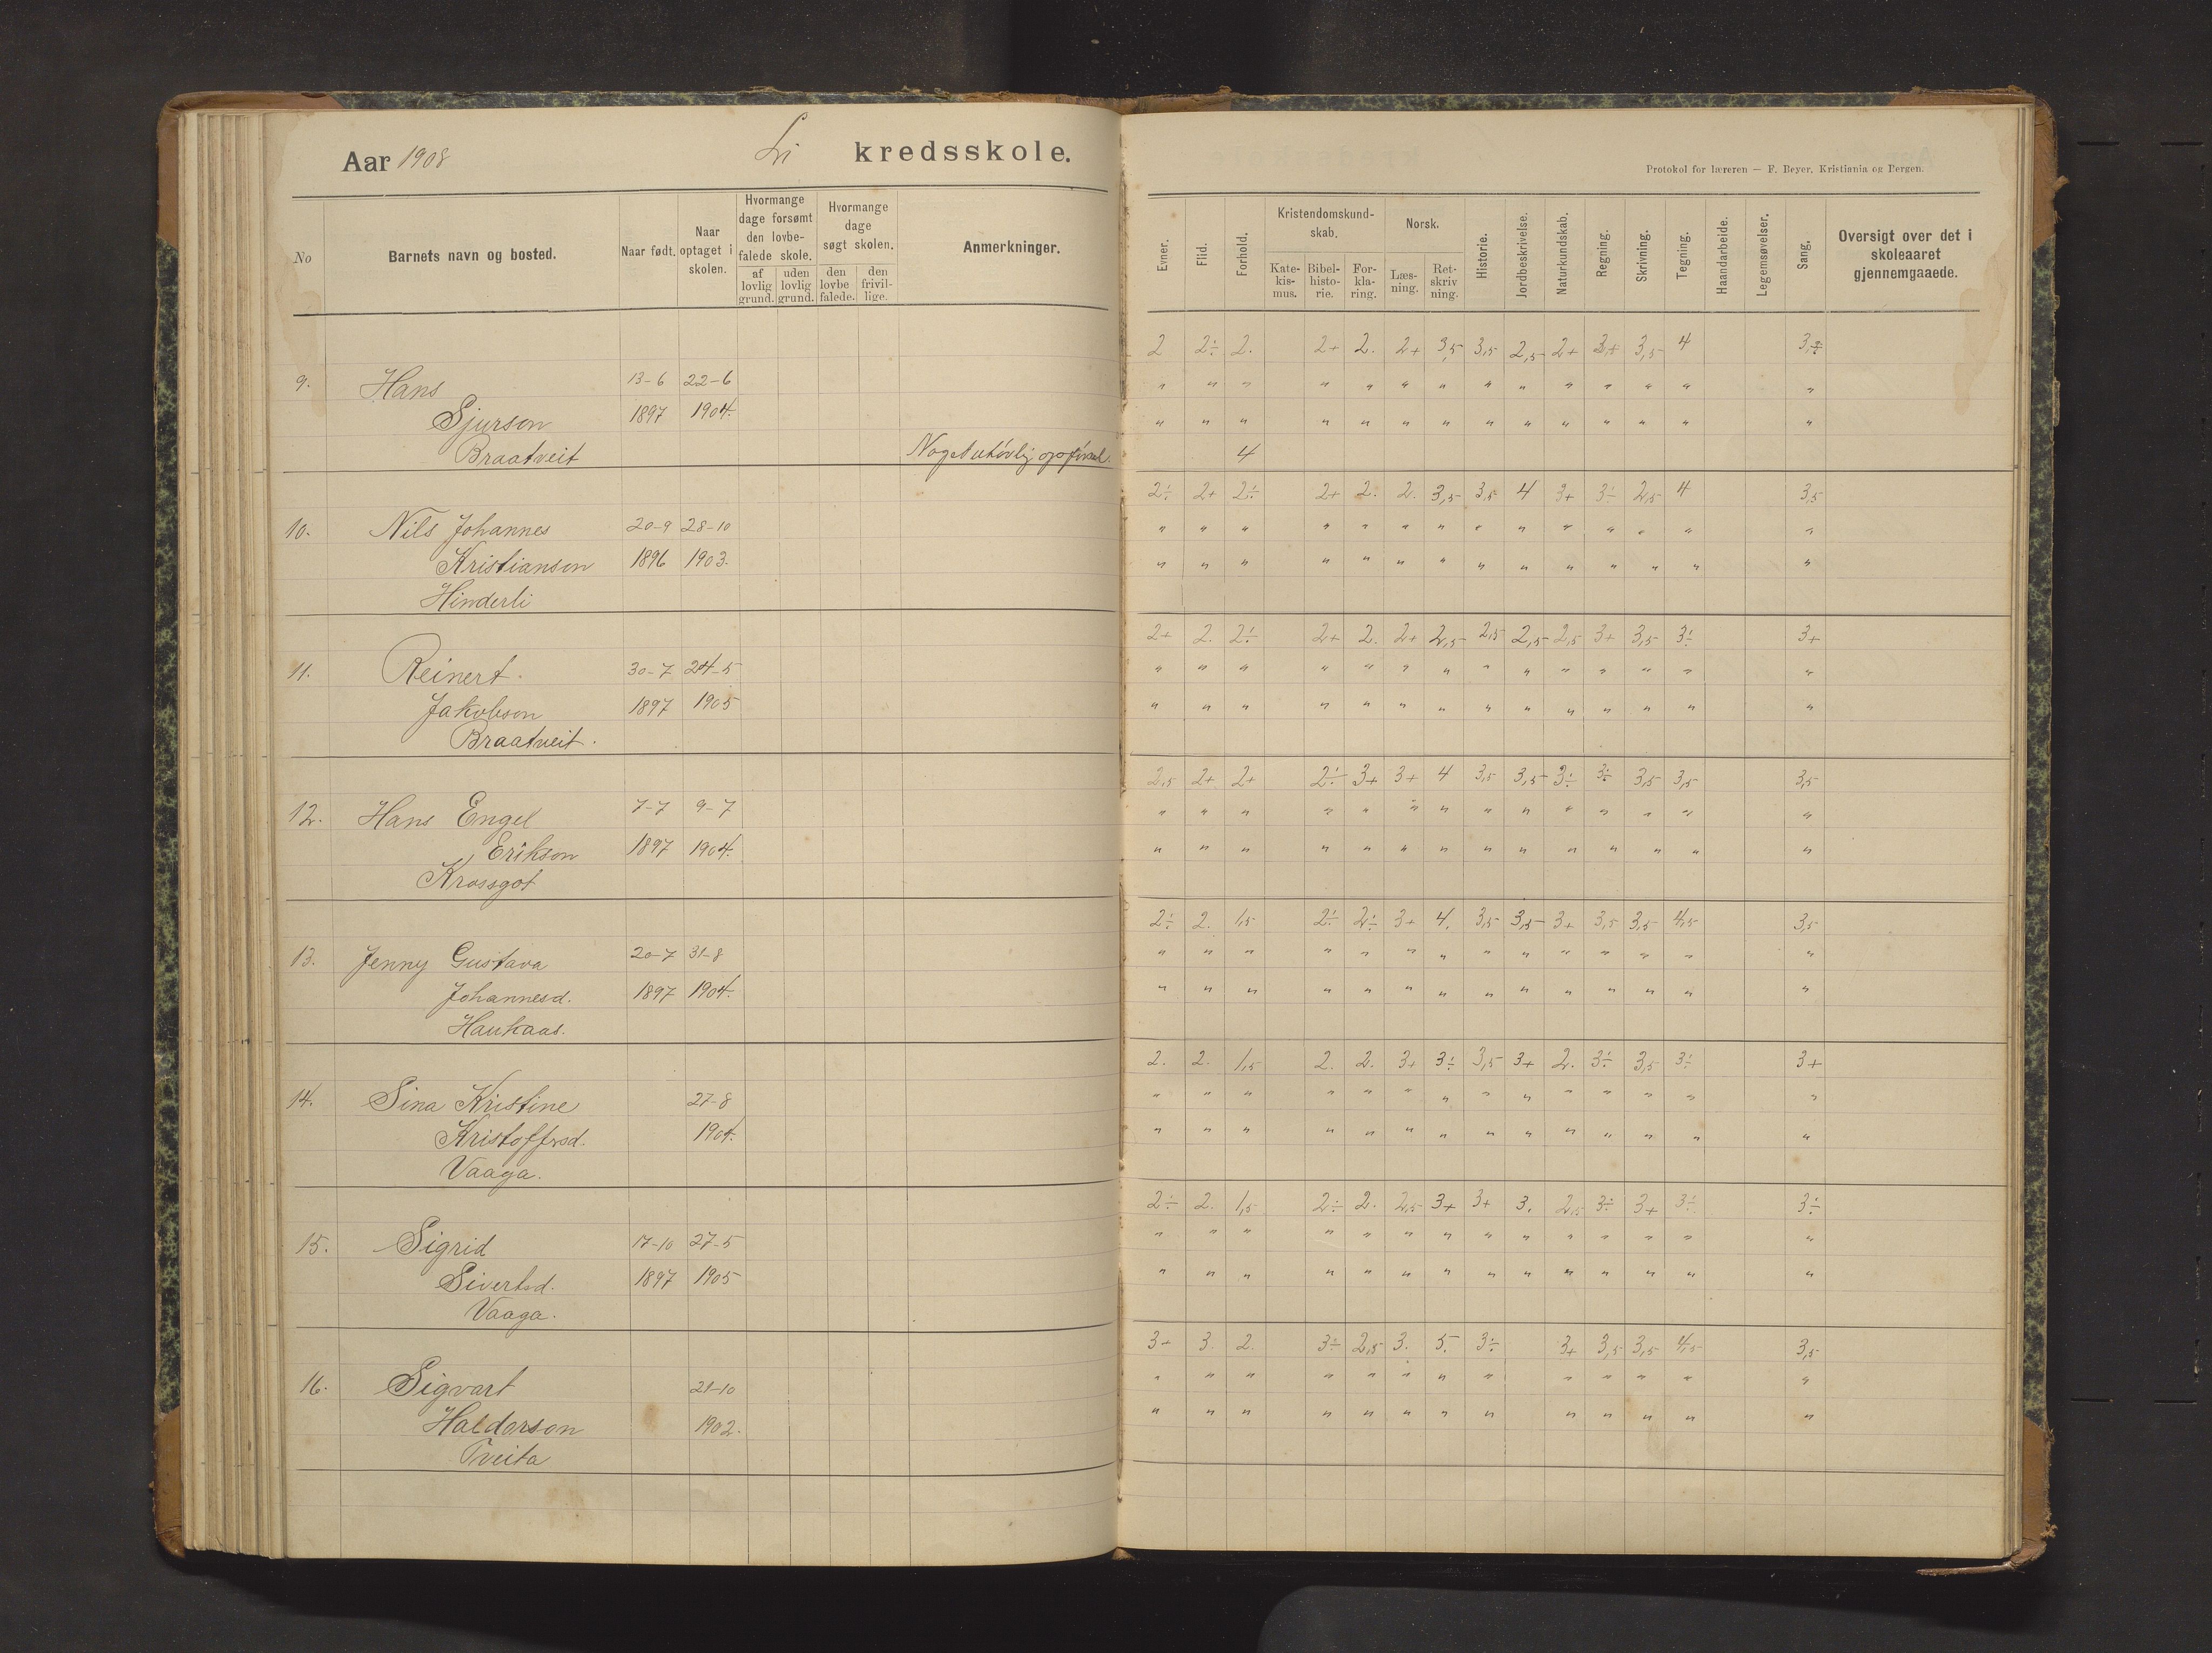 Aar 1908 Li kredsskole.
Protokol for læreren — F. Beyer, Kristiania og Bergen.
No Barnets navn og bosted. Naar født. Naar optaget i skolen. Hvormange dage forsømt den lovbefalede skole. af lovlig grund. uden lovlig grund. Hvormange dage søgt skolen. den lovbefalede. den frivillige. Anmerkninger.
Evner. Flid. Forhold. Kristendomskundskab. Katekismus. Bibelhistorie. Forklaring. Norsk. Læsning. Retskrivning. Historie. Jordbeskrivelse. Naturkundskab. Regning. Skrivning. Tegning. Haandarbeide. Legemsøvelser. Sang. Oversigt over det i skoleaaret gjennemgaaede.
2 2÷ 2. 2+ 2. 2+ 3,5 3,5 2,5 2+ 3+ 3,5 4
9. Hans 13-6 22-6 " " " " " " " " " " " " " "
Sjurson 1897 1904. " " " " " " " " " " " " " "
Braatveit Noget 4
2÷ 2+ 2÷ 2+ 2. 2. 3,5 3,5 4 3+ 3÷ 2,5 4 3,5
10. Nils Johannes 20-9 28-10 " " " " " " " " " " " " " "
Kristianson 1896 1903. " " " " " " " " " " " " " "
Hinderli
2+ 2. 2÷ 2+ 2. 2+ 2,5 2,5 2,5 2,5 3+ 3,5 3÷ 3+
11. Reinert. 30-7 24-5 " " " " " " " " " " " " " "
Jakobson 1897 1905 " " " " " " " " " " " " " "
Braatveit.
2,5 2+ 2+ 2÷ 3+ 3+ 4 3,5 3,5 3÷ 3÷ 3,5 3,5 3,5
12. Hans Engel 7-7 9-7 " " " " " " " " " " " " " "
Erikson 1897 1904. " " " " " " " " " " " " " "
Krossgot
2÷ 2. 1,5 2÷ 2÷ 3+ 4. 3,5 3,5 3+ 3,5 3,5 4,5 3,5
13. Jenny Gustava 20-7 31-8 " " " " " " " " " " " " " "
Johannesd. 1897 1904. " " " " " " " " " " " " " "
Haukaas.
2. 2. 1,5 2. 2. 3+ 3÷ 3,5 3+ 2. 3÷ 3,5 3÷ 3+
14. Sina Kristine 27-8 " " " " " " " " " " " " " "
Kristoffersd. 1904. " " " " " " " " " " " " " "
Vaaga.
2÷ 2. 1,5 2÷ 2. 2,5 3+ 3+ 3. 2,5 3÷ 3+ 3÷ 3÷
15. Sigrid 17-10 27-5 " " " " " " " " " " " " " "
Sivertsd. 1897 1905 " " " " " " " " " " " " " "
Vaaga.
3+ 3. 2. 3÷ 2,5 3. 5. 3÷ 3+ 3,5 3,5 4,5 3,5
16. Sigvart 21-10 " " " " " " " " " " " " "
Haldorson 1902. " " " " " " " " " " " " "
Tveita